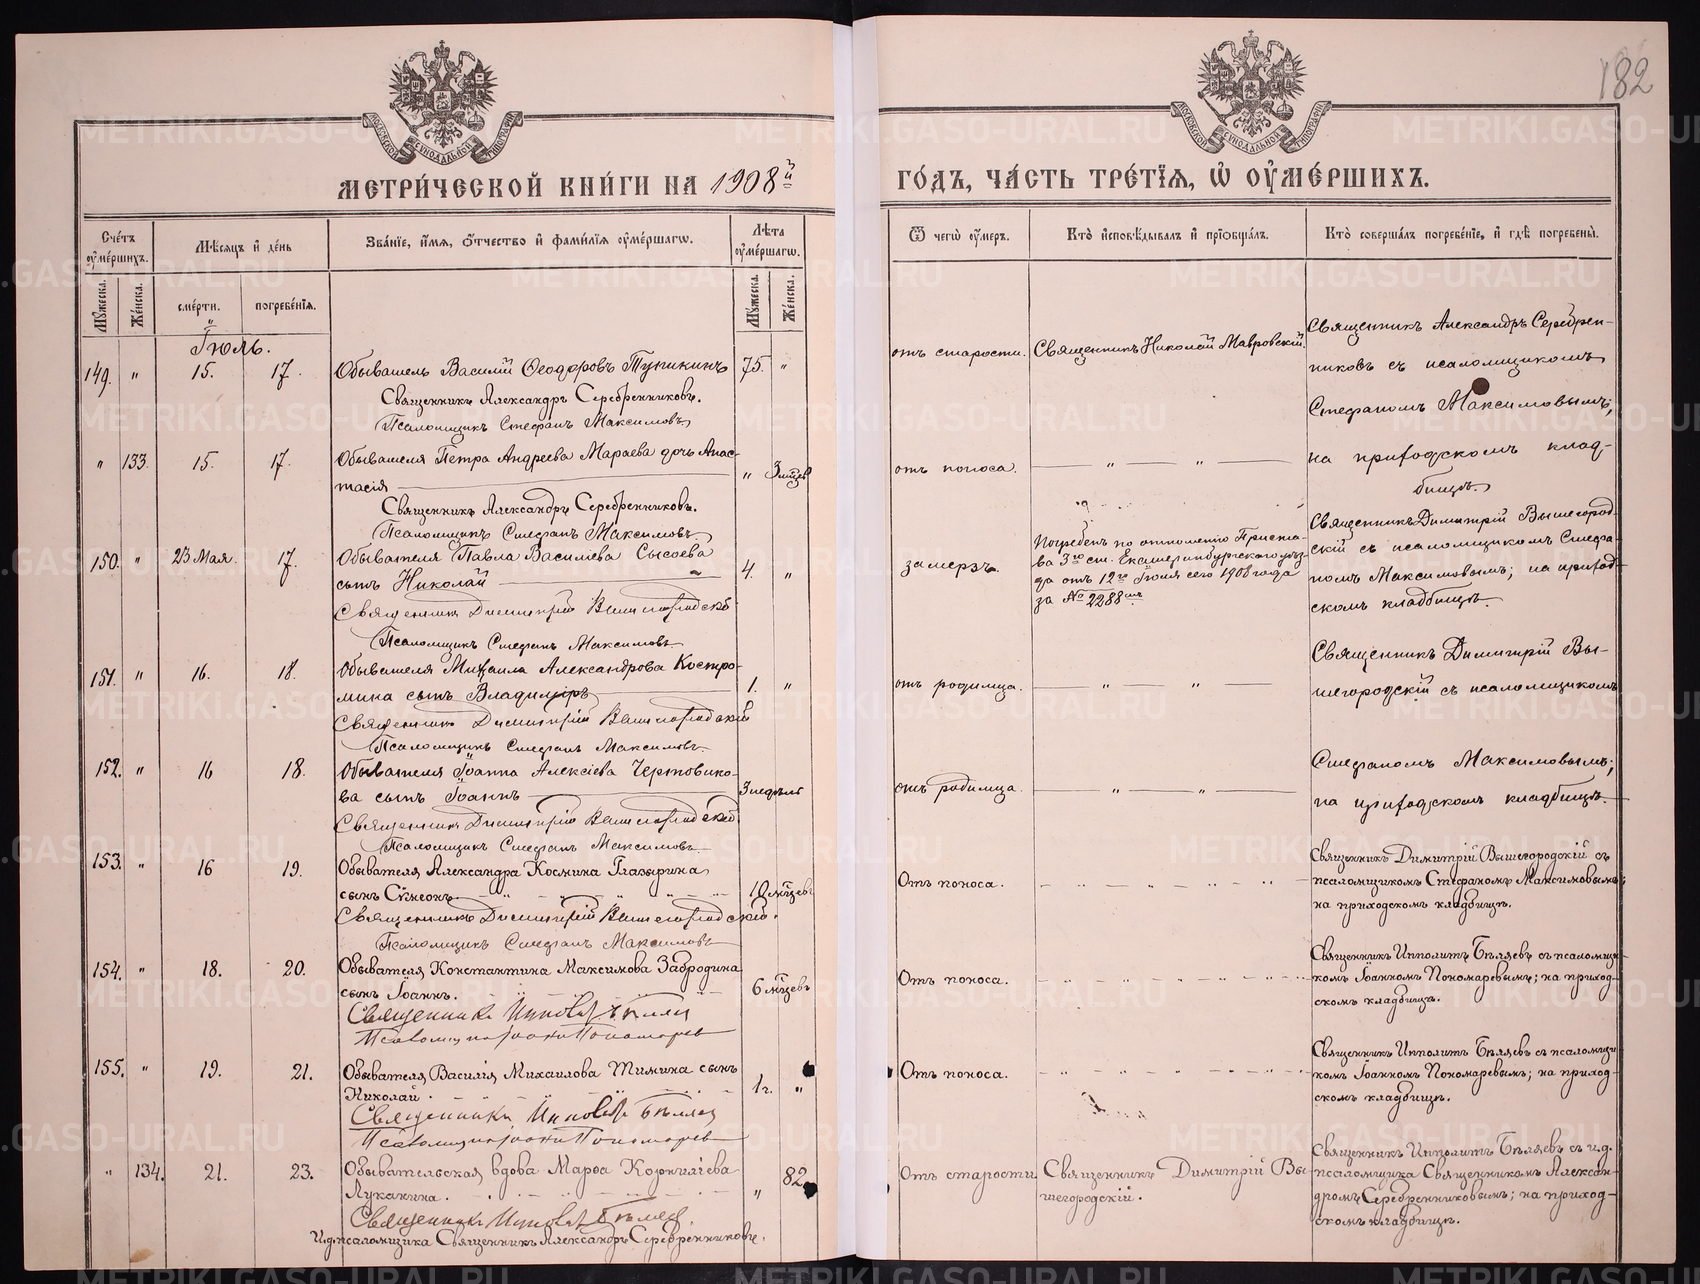 182
МОСКОВСКОЙ СѴНОДАЛЬНОЙ ТИПОГРАФІИ
МОСКОВСКОЙ СѴНОДАЛЬНОЙ ТИПОГРАФІИ
МЕТРИ́ЧЕСКОЙ КНИ́ГИ НА 1908й
ГО́ДЪ, ЧА́СТЬ ТРЕ́ТІЯ, Ѡ ОУ҆МЕ́РШИХЪ.
Сче́тъ оу҆ме́ршихъ.
Мѣ́сяцъ и҆ де́нь
Зва́нїе, и҆́мя, ѻ҆́тчество и҆ фами́лїя оу҆ме́ршагѡ.
Лѣ́та оу҆ме́ршагѡ.
Ѿ чегѡ̀ оу҆́меръ.
Кто̀ и҆сповѣ́дывалъ и҆ прїѡбща́лъ.
Кто̀ соверша́лъ погребе́нїе, и҆ гдѣ̀ погребены̀.
Му́жеска.
Же́нска.
сме́рти.
погребе́нїя.
Му́жеска.
Же́нска.
Іюль.
149. " 15. 17. Обыватель Василій Ѳеодоровъ Тупикинъ 75. "
Священникъ Александръ Серебренниковъ.
Псаломщикъ Стефанъ Максимовъ
отъ старости. Священникъ Николай Мавровскій.
Священникъ Александръ Серебрен-
никовъ съ псаломщикомъ
Стефаномъ Максимовымъ;
на приходскомъ клад-
бищѣ.
" 133. 15. 17. Обывателя Петра Андреева Мараева дочь Анас-
тасія " 3 мѣсцев
Священникъ Александръ Серебренниковъ.
Псаломщикъ Стефанъ Максимовъ
отъ поноса. " "
150. " 23 Мая. 17. Обывателя Павла Василіева Сысоева
сынъ Николай 4. "
Священникъ Димитрій Вышегородскій
Псаломщикъ Стефанъ Максимовъ
замерзъ.
Погребенъ по отношенію Приста-
ва 3го ст. Екатеринбургскаго уѣз-
да отъ 12го Іюля сего 1908 года
за № 2288мъ
Священникъ Димитрій Вышегород-
скій съ псаломщикомъ Стефа-
номъ Максимовымъ; на приход-
скомъ кладбищѣ.
151. " 16. 18. Обывателя Михаила Александрова Костро-
мина сынъ Владиміръ 1. "
Священникъ Димитрій Вышегородскій
Псаломщикъ Стефанъ Максимовъ.
отъ родимца. " "
Священникъ Димитрій Вы-
шегородскій съ псаломщикомъ
Стефаномъ Максимовымъ;
на приходскомъ кладбищѣ.
152. " 16 18. Обывателя Іоанна Алексіева Чертовико-
ва сынъ Іоаннъ 3 недѣль
Священникъ Димитрій Вышегородскій
Псаломщикъ Стефанъ Максимовъ
отъ родимца. " "
153. " 16 19. Обывателя Александра Космина Глазырина
сынъ Сѵмеонъ 10 мѣсцевъ
Священникъ Димитрій Вышегородскій.
Псаломщикъ Стефанъ Максимовъ
Отъ поноса. " " "
Священникъ Димитрій Вышегородскій съ
псаломщикомъ Стефаномъ Максимовымъ;
на приходскомъ кладбищѣ.
154. " 18. 20. Обывателя Константина Максимова Забродина
сынъ Іоаннъ. 6 мѣсцевъ
Священникъ Ипполитъ Бѣляевъ
Псаломщикъ Іоаннъ Пономаревъ
Отъ поноса. " " "
Священникъ Ипполитъ Бѣляевъ съ псаломщи-
комъ Іоанномъ Пономаревымъ; на приход-
скомъ кладбищѣ.
155. " 19. 21. Обывателя Василія Михаилова Тимина сынъ
Николай. 1 г. "
Священникъ Ипполитъ Бѣляевъ
Псаломщикъ Іоаннъ Пономаревъ
Отъ поноса. " " "
Священникъ Ипполитъ Бѣляевъ съ псаломщи-
комъ Іоанномъ Пономаревымъ; на приход-
скомъ кладбищѣ.
" 134. 21. 23. Обывательская вдова Марѳа Корниліева
Луканина. " 82
Священникъ Ипполитъ Бѣляевъ.
И.д. псаломщика Священникъ Александръ Серебренниковъ.
Отъ старости. Священникъ Димитрій Вы-
шегородскій.
Священникъ Ипполитъ Бѣляевъ съ и.д.
псаломщика Священникомъ Алексан-
дромъ Серебренниковымъ; на приход-
скомъ кладбищѣ.
METRIKI.GASO-URAL.RU